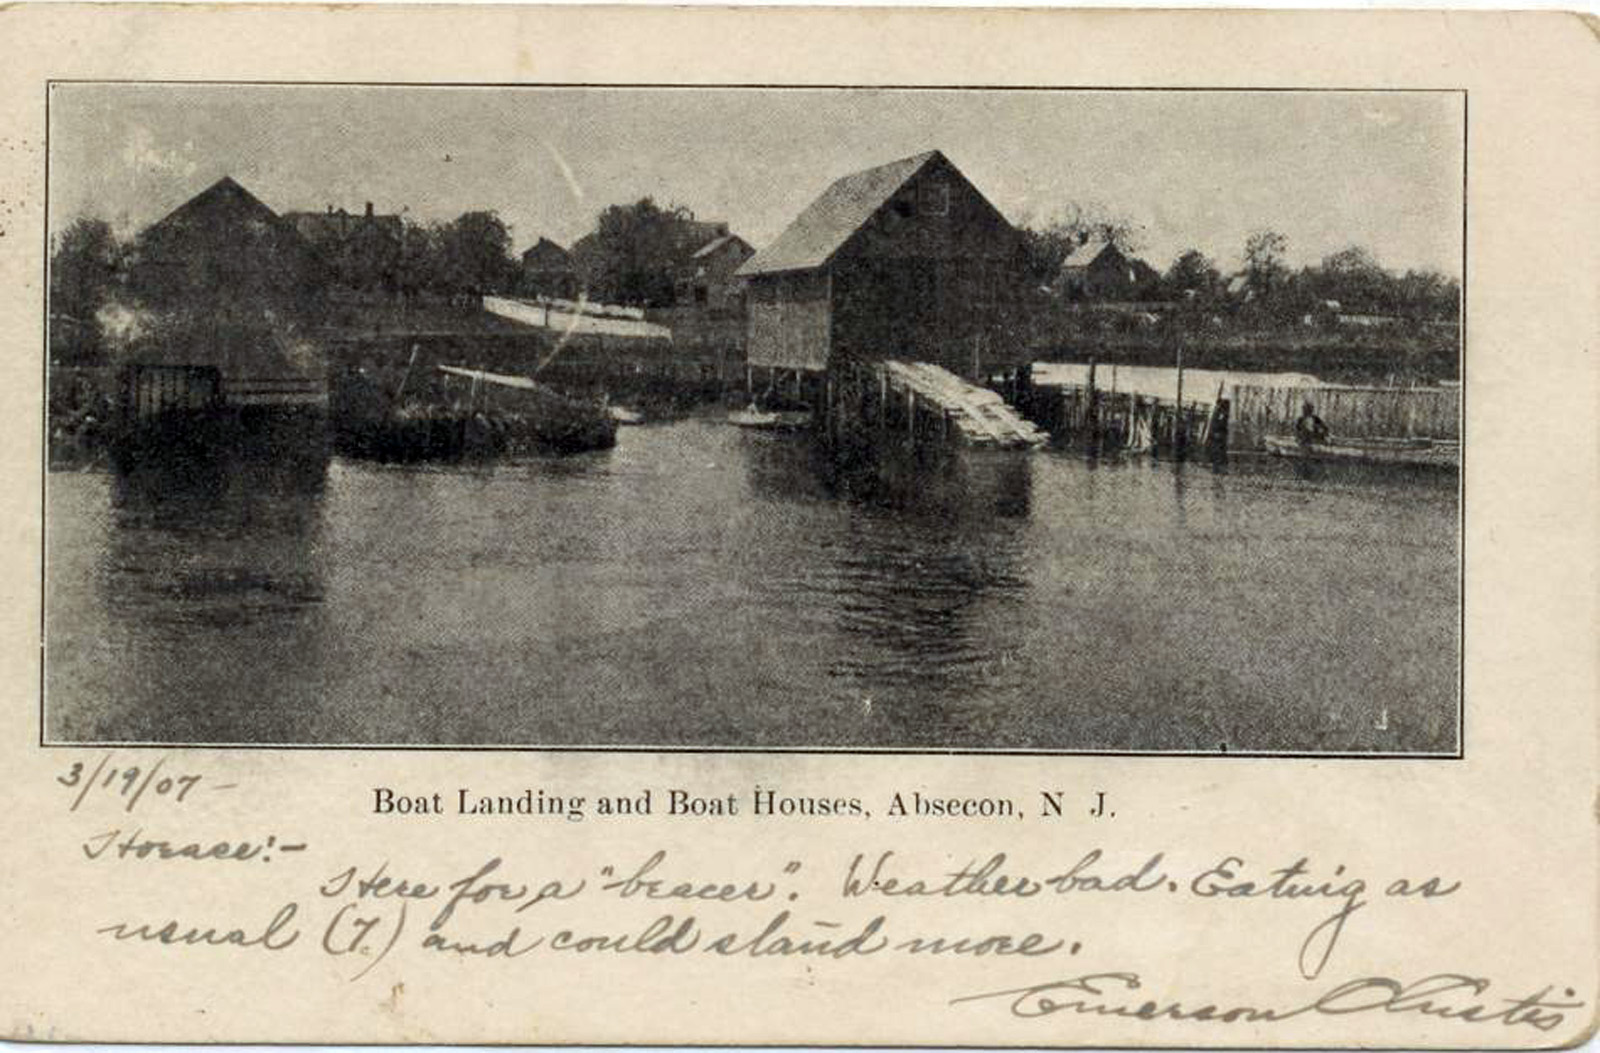 3/19/07 -
Boat Landing and Boat Houses, Absecon, N J.
Horace!-
Here for a "bracer". Weather bad. Eating as
usual (7.) and could stand more.
Emerson